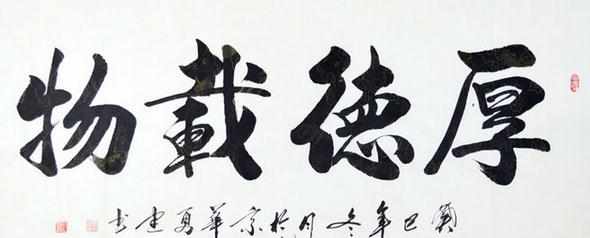 厚德載物
癸巳年冬月於京華